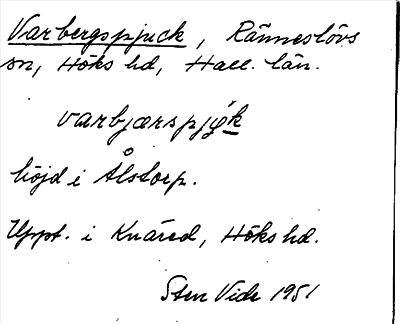 Varbergspjuck, Ränneslövs
sn, Höks hd, Hall. län.
varbjærspjøk
höjd i Ålstorp.
Uppt. i Knäred, Höks hd.
Sten Vide 1951